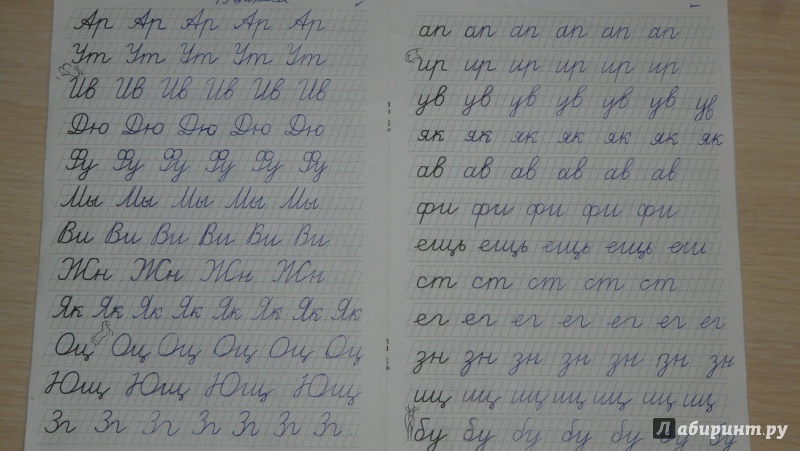 Ар Ар Ар Ар Ар
Ут Ут Ут Ут Ут
Ив Ив Ив Ив Ив Ив
Дю Дю Дю Дю Дю
Фу Фу Фу Фу Фу Фу
Мы Мы Мы Мы Мы
Ви Ви Ви Ви Ви Ви
Жн Жн Жн Жн
Як Як Як Як Як Як Як Як
Оц Оц Оц Оц Оц Оц
Ющ Ющ Ющ Ющ
Зг Зг Зг Зг Зг Зг Зг
ап ап ап ап ап ап
ир ир ир ир ир ир
ув ув ув ув ув ув ув
як як як як як як як
ав ав ав ав ав ав
фи фи фи фи фи
ещь ещь ещь ещь еш
ст ст ст ст ст ст
ег ег ег ег ег ег ег
зн зн зн зн зн зн зн
иц иц иц иц иц иц иц
бу бу бу бу бу бу бу
Лабиринт.ру